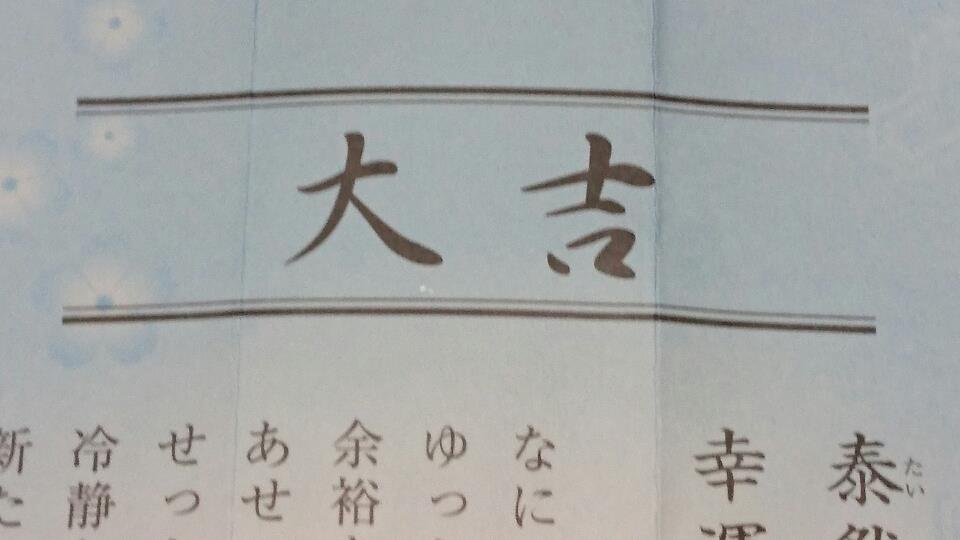 大吉
泰
たい
幸運
なに
ゆっ
余裕
あせ
せっ
冷静
新た